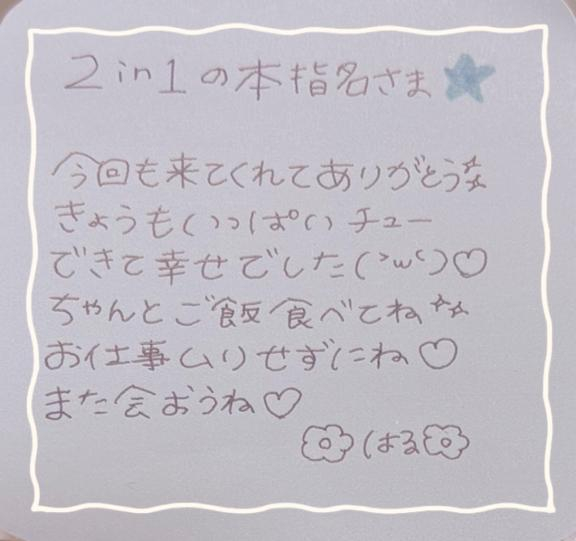 2in1の本指名さま★
今回も来てくれてありがとう☆☆
きょうもいっぱいチュー
できて幸せでした(˃ω˂)♡
ちゃんとご飯食べてね☆☆
お仕事ムリせずにね♡
また会おうね♡
はる